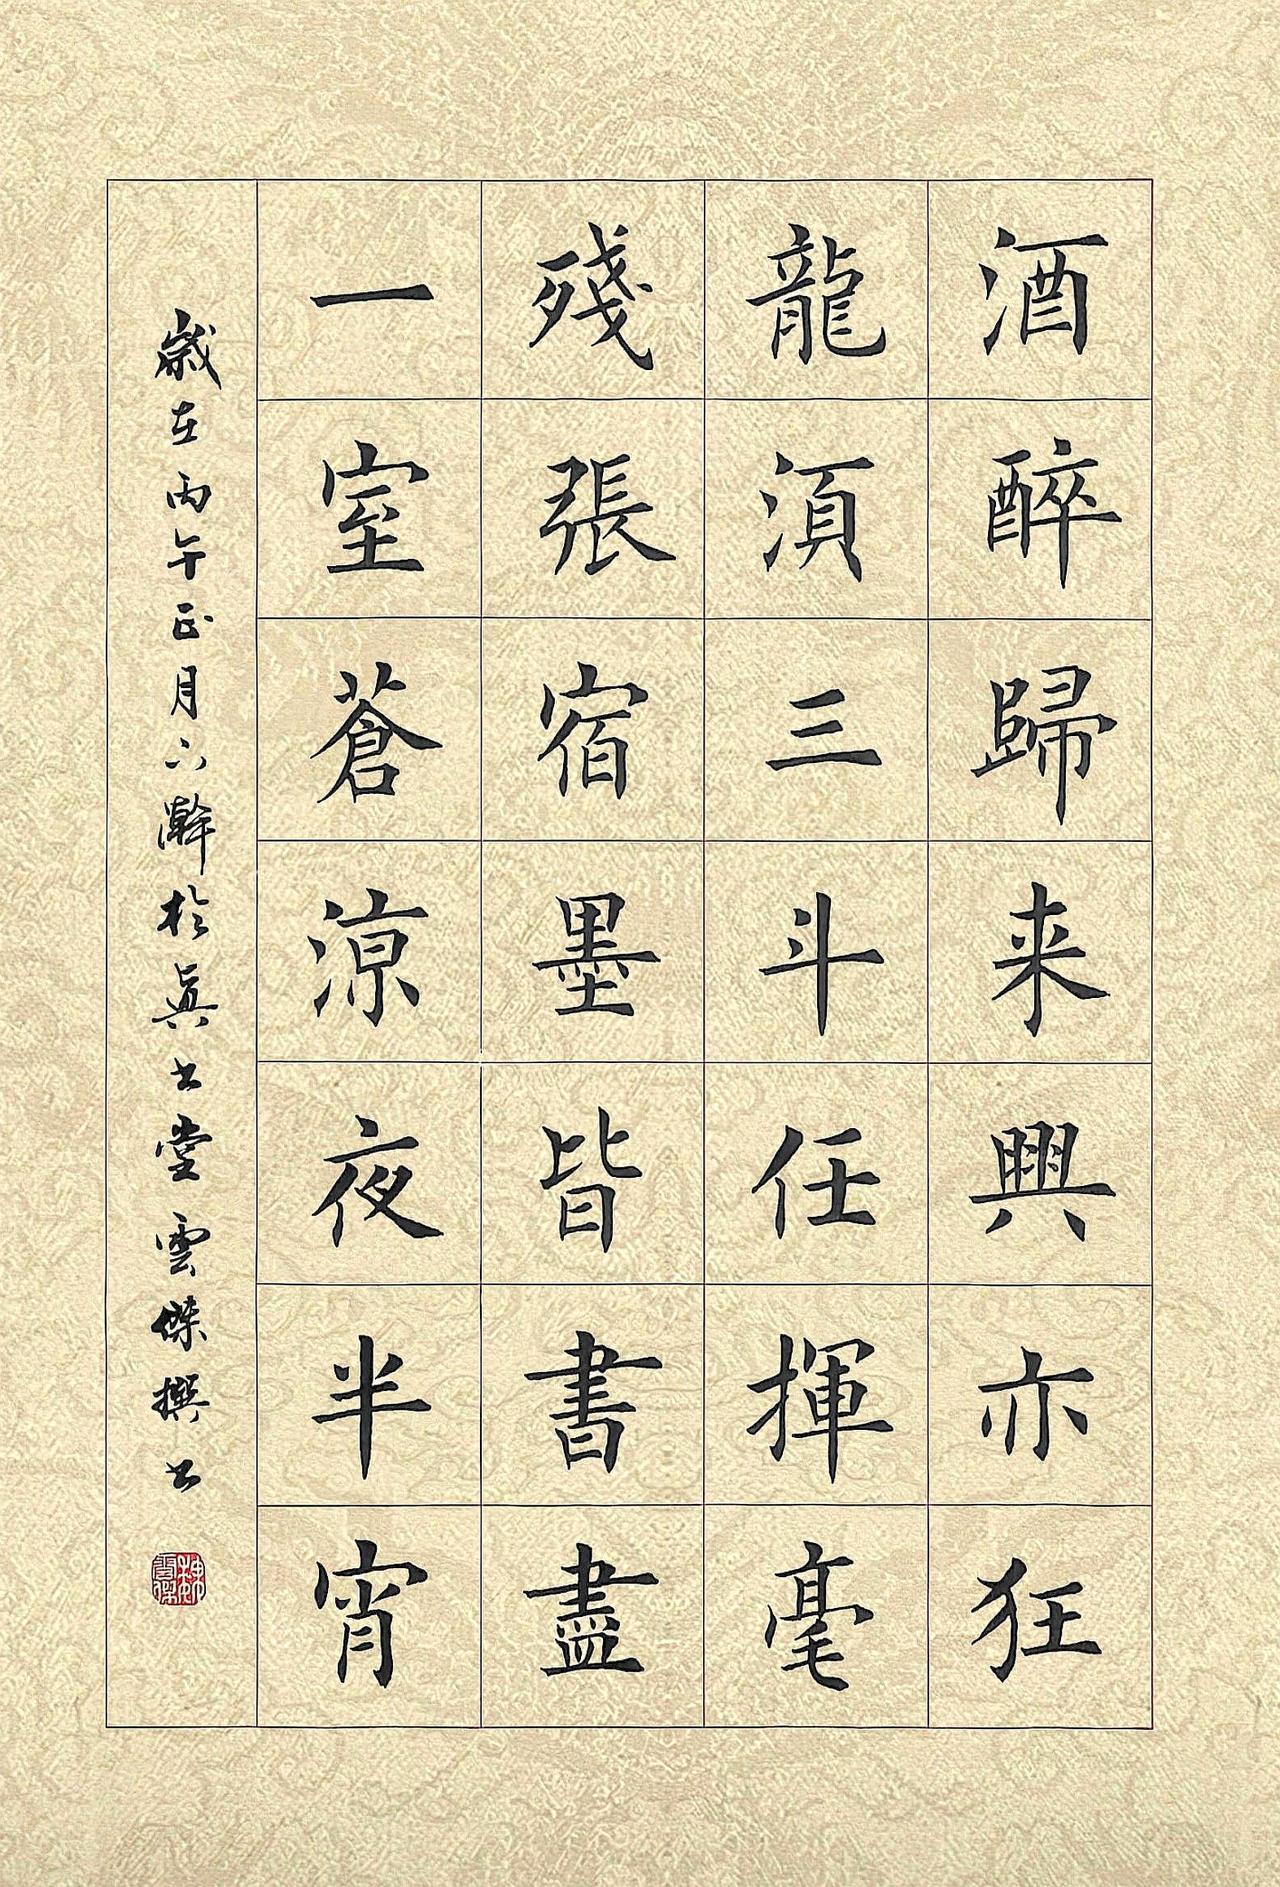 酒醉歸来興亦狂
龍湏三斗任揮毫
殘張宿墨皆書盡
一室蒼涼夜半宵
歲在丙午正月六澣於眞书堂雲傑撰书